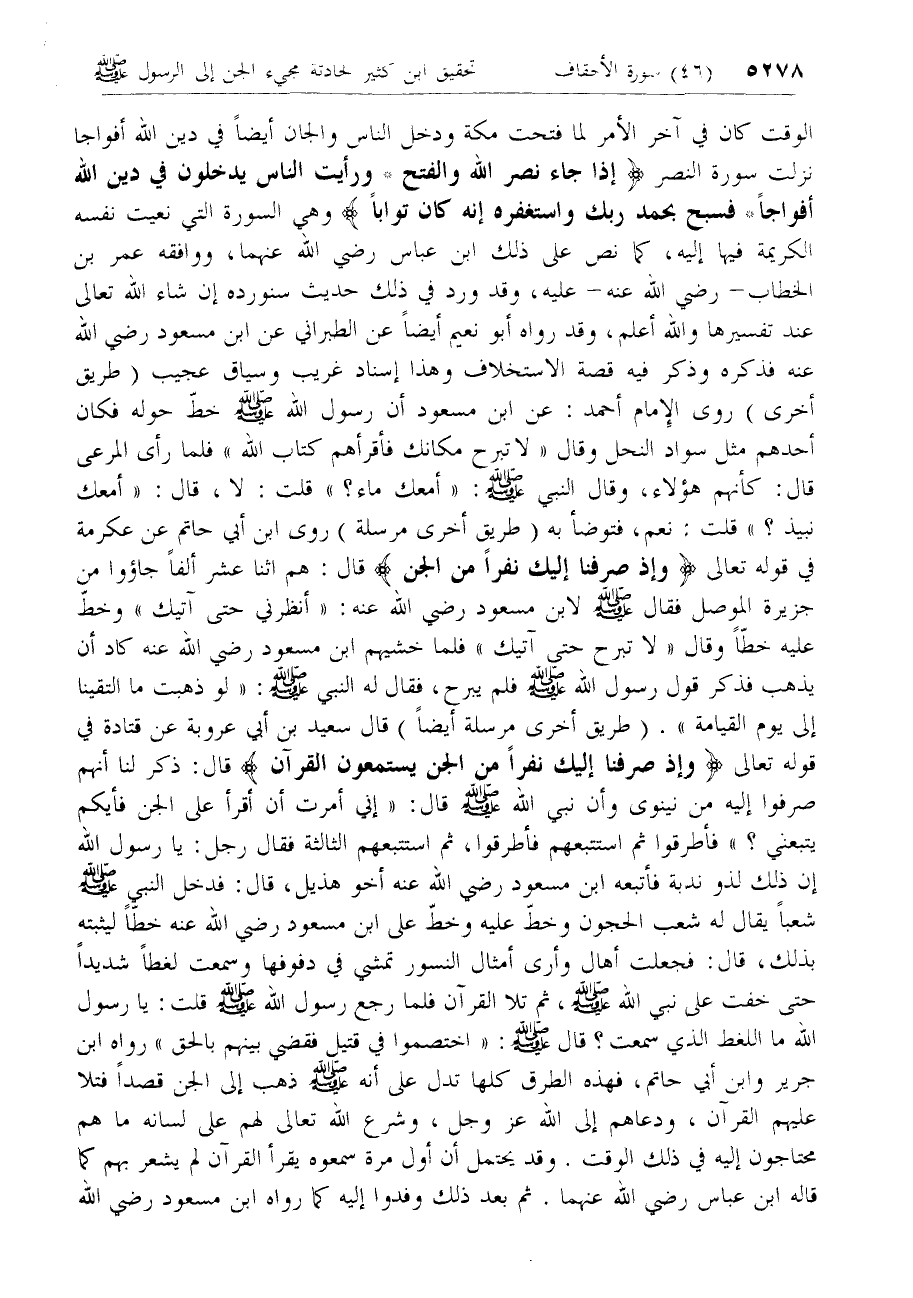 ٥٢٧٨ (٤٦) سورة الأحقاف تحقيق ابن كثير لحادثة مجيء الجن إلى الرسول ﷺ
الوقت كان في آخر الأمر لما فتحت مكة ودخل الناس والجان أيضاً في دين الله أفواجا
نزلت سورة النصر ﴿ إذا جاء نصر الله والفتح * ورأيت الناس يدخلون في دين الله
أفواجاً * فسبح بحمد ربك واستغفره إنه كان تواباً ﴾ وهي السورة التي نعيت نفسه
الكريمة فيها إليه، كما نص على ذلك ابن عباس رضي الله عنهما، ووافقه عمر بن
الخطاب – رضي الله عنه – عليه، وقد ورد في ذلك حديث سنورده إن شاء الله تعالى
عند تفسيرها والله أعلم، وقد رواه أبو نعيم أيضاً عن الطبراني عن ابن مسعود رضي الله
عنه فذكره وذكر فيه قصة الاستخلاف وهذا إسناد غريب وسياق عجيب ( طريق
أخرى ) روى الإمام أحمد : عن ابن مسعود أن رسول الله ﷺ خطّ حوله فكان
أحدهم مثل سواد النحل وقال « لا تبرح مكانك فأقرأهم كتاب الله » فلما رأى المرعى
قال: كأنهم هؤلاء، وقال النبي ﷺ: « أمعك ماء؟ » قلت : لا ، قال : « أمعك
نبيذ ؟ » قلت : نعم، فتوضأ به ( طريق أخرى مرسلة ) روى ابن أبي حاتم عن عكرمة
في قوله تعالى ﴿ وإذ صرفنا إليك نفراً من الجن ﴾ قال : هم اثنا عشر ألفاً جاؤوا من
جزيرة الموصل فقال ﷺ لابن مسعود رضي الله عنه: « أنظرني حتى آتيك » وخطّ
عليه خطّاً وقال « لا تبرح حتى آتيك » فلما خشيهم ابن مسعود رضي الله عنه كاد أن
يذهب فذكر قول رسول الله ﷺ فلم يبرح، فقال له النبي ﷺ: « لو ذهبت ما التقينا
إلى يوم القيامة » . ( طريق أخرى مرسلة أيضاً ) قال سعيد بن أبي عروبة عن قتادة في
قوله تعالى ﴿ وإذ صرفنا إليك نفراً من الجن يستمعون القرآن ﴾ قال: ذكر لنا أنهم
صرفوا إليه من نينوى وأن نبي الله ﷺ قال: « إني أمرت أن أقرأ على الجن فأيكم
يتبعني ؟ » فأطرقوا ثم استتبعهم فأطرقوا، ثم استتبعهم الثالثة فقال رجل: يا رسول الله
إن ذلك لذو ندبة فأتبعه ابن مسعود رضي الله عنه أخو هذيل، قال: فدخل النبي ﷺ
شعباً يقال له شعب الحجون وخطّ عليه وخطّ على ابن مسعود رضي الله عنه خطّاً ليثبته
بذلك، قال: فجعلت أهال وأرى أمثال النسور تمشي في دفوفها وسمعت لغطاً شديداً
حتى خفت على نبي الله ﷺ ، ثم تلا القرآن فلما رجع رسول الله ﷺ قلت: يا رسول
الله ما اللغط الذي سمعت؟ قال ﷺ : « اختصموا في قتيل فقضي بينهم بالحق » رواه ابن
جرير وابن أبي حاتم، فهذه الطرق كلها تدل على أنه ﷺ ذهب إلى الجن قصداً فتلا
عليهم القرآن ، ودعاهم إلى الله عز وجل ، وشرع الله تعالى لهم على لسانه ما هم
محتاجون إليه في ذلك الوقت . وقد يحتمل أن أول مرة سمعوه يقرأ القرآن لم يشعر بهم كما
قاله ابن عباس رضي الله عنهما . ثم بعد ذلك وفدوا إليه كما رواه ابن مسعود رضي الله